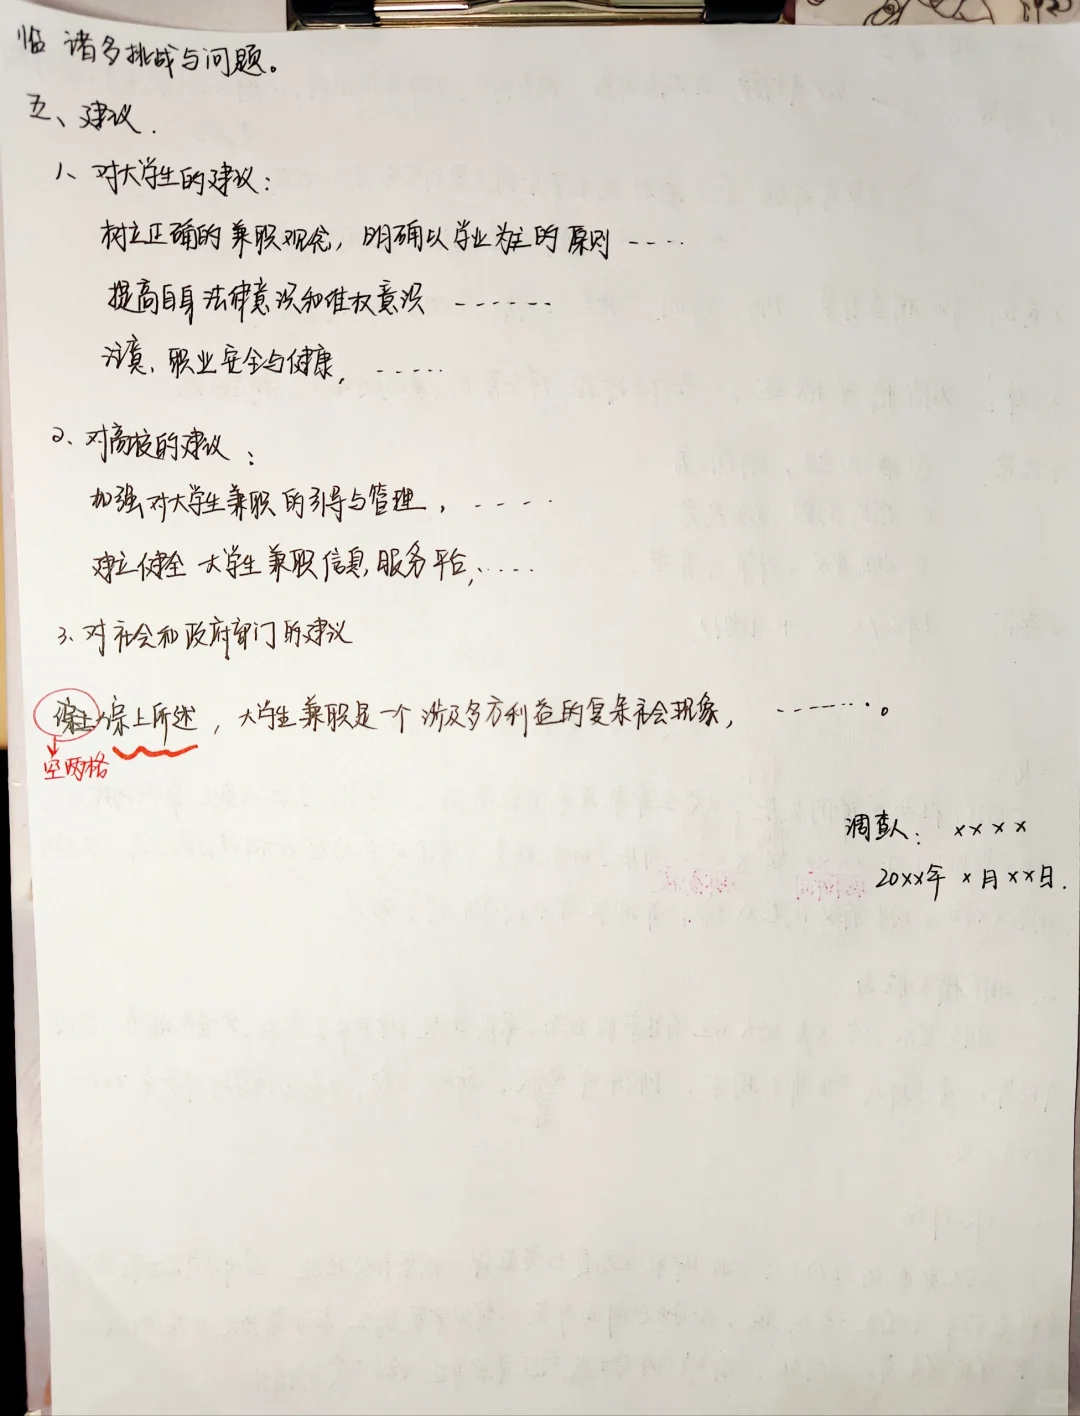 临诸多挑战与问题。
五、建议.
1、对大学生的建议：
树立正确的兼职观念，明确以学业为主的原则----
提高自身法律意识和维权意识------
注意、职业安全与健康，-----
2、对高校的建议：
加强对大学生兼职的引导与管理，----
建立健全大学生兼职信息服务平台，....
3、对社会和政府部门的建议
综上所述，大学生兼职是一个涉及多方利益的复杂社会现象，-------。
空两格
调查人：xxxx
20xx年x月xx日.